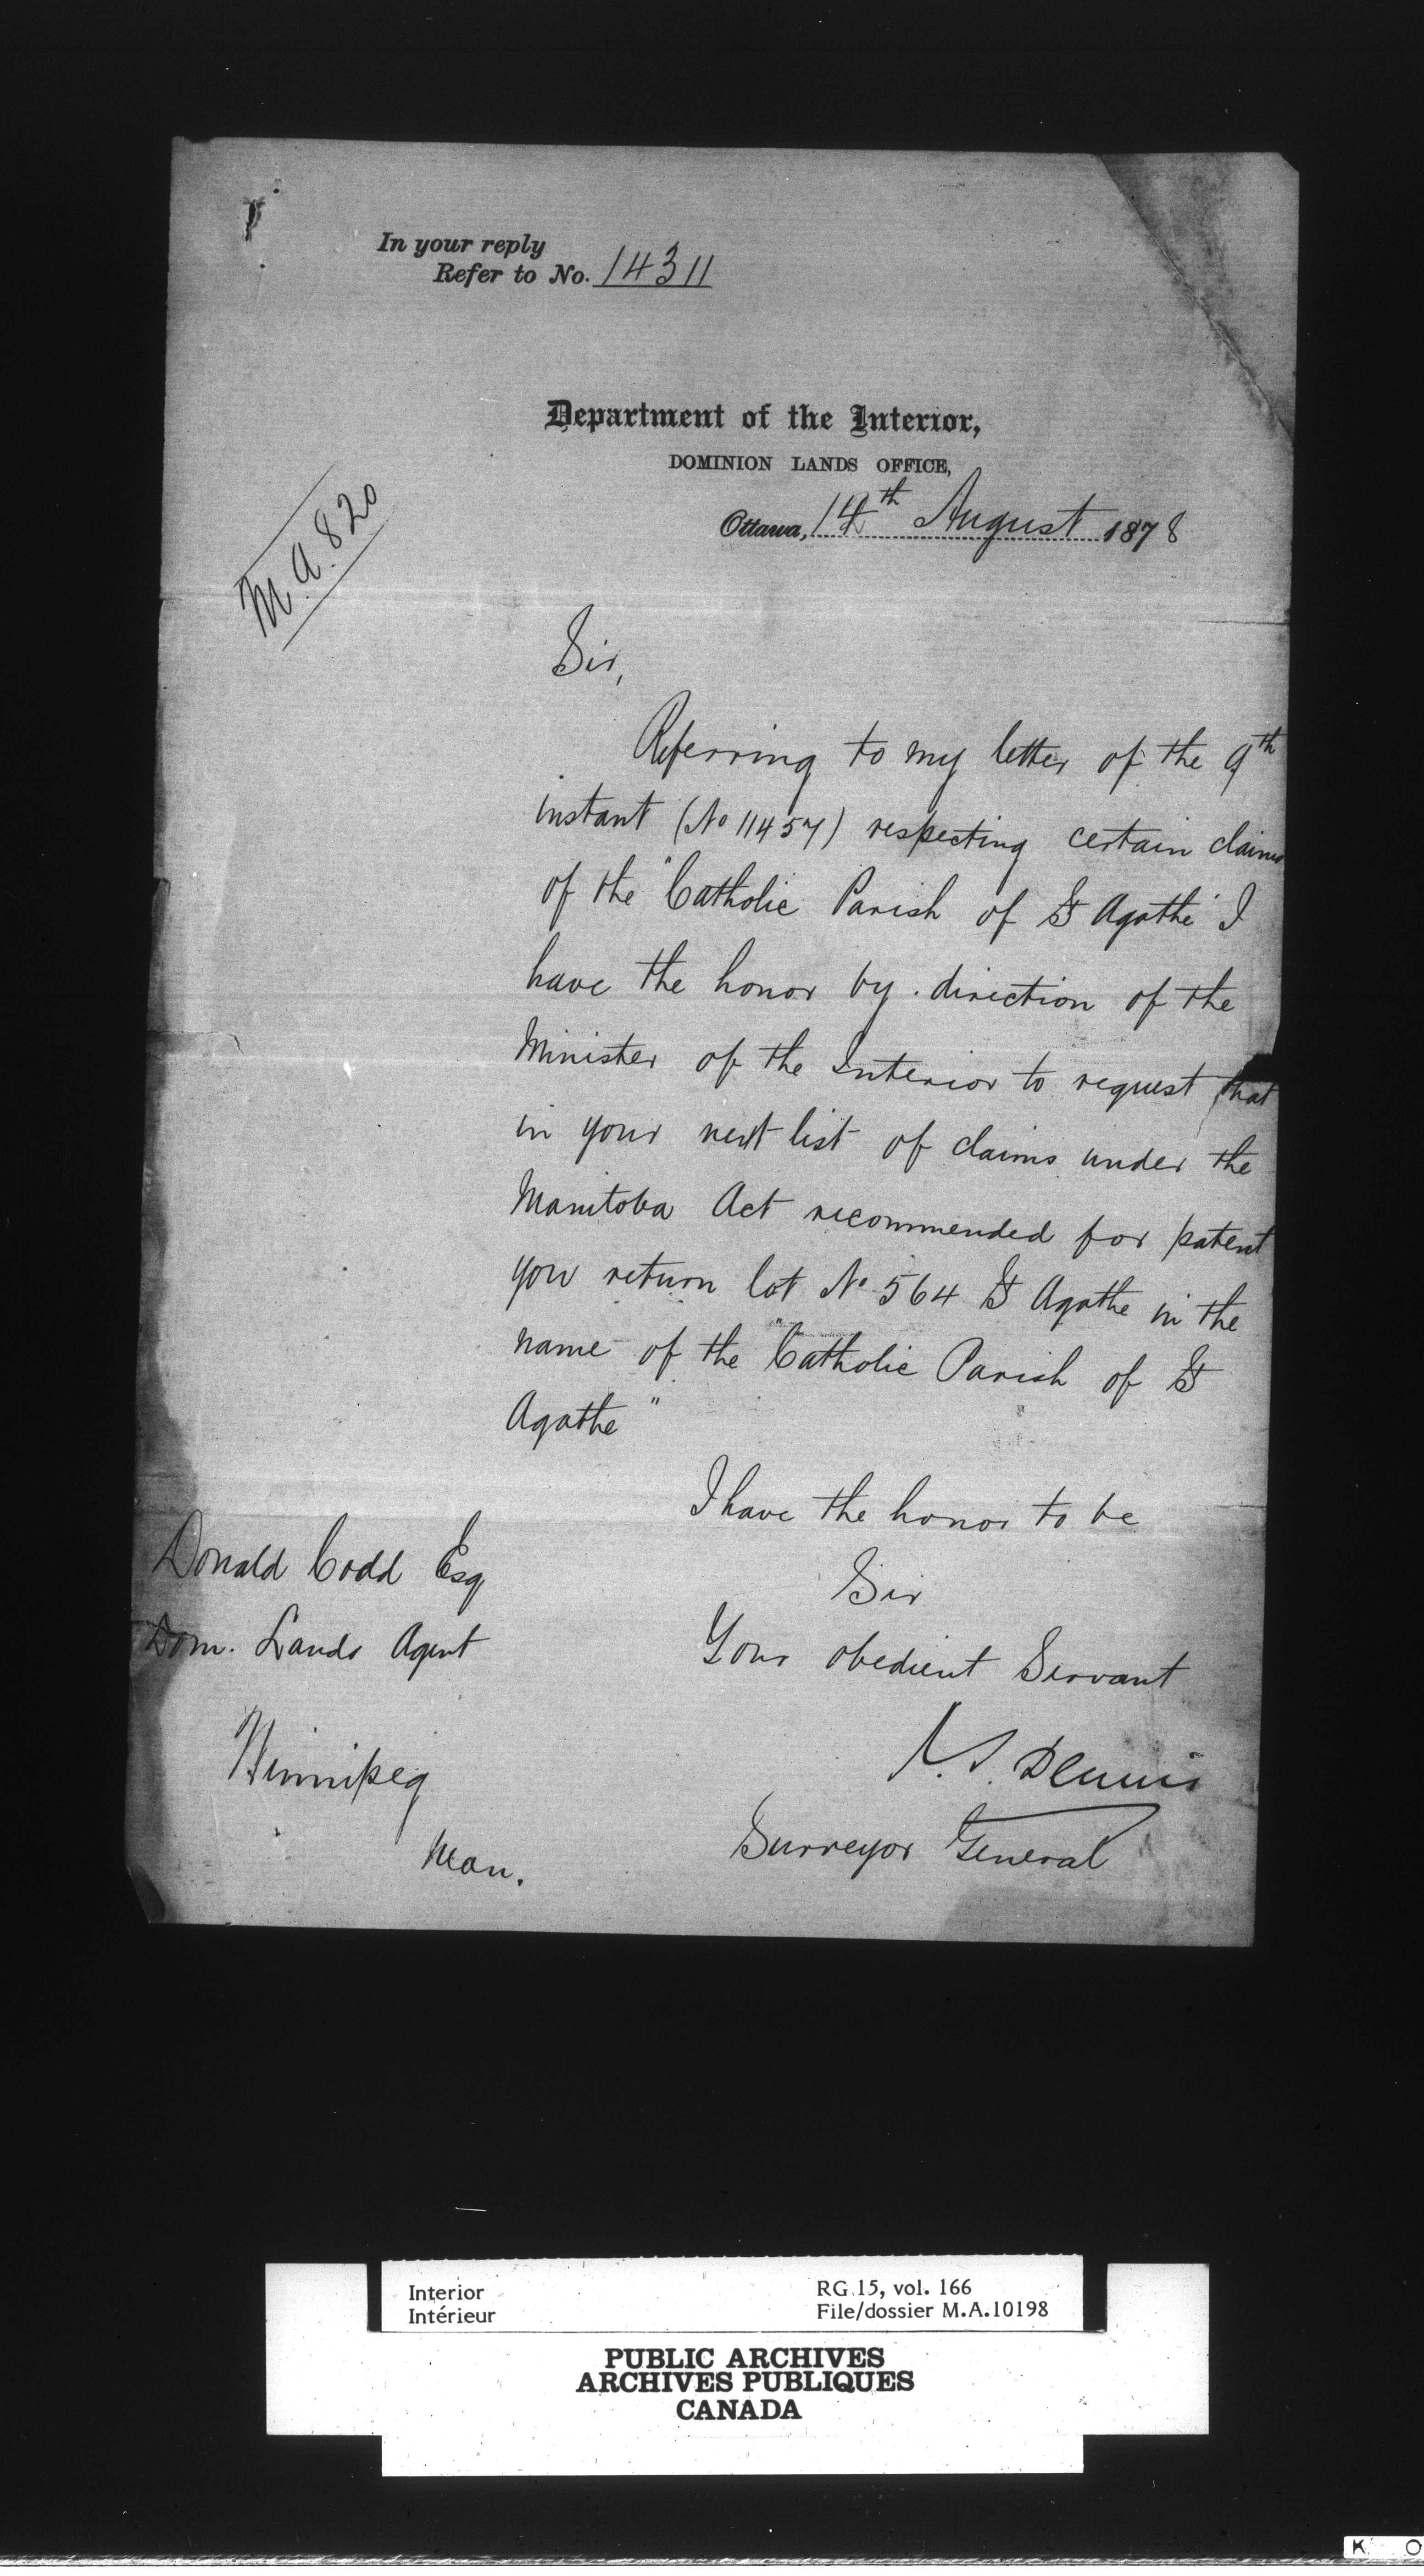 In your reply
Refer to No. 14311
Department of the Interior,
DOMINION LANDS OFFICE,
Ottawa, 14th August 1878
M.A. 820
Sir,
Referring to my letter of the 9th
instant (No 11457) respecting certain claims
of the "Catholic Parish of St Agathe" I
have the honor by direction of the
Minister of the Interior to request that
in your next list of claims under the
Manitoba Act recommended for patent
you return lot No 564 St Agathe in the
name of the "Catholic Parish of St
Agathe"
I have the honor to be
Sir
Your obedient Servant
J. S. Dennis
Surveyor General
Donald Codd Esq
Dom. Lands Agent
Winnipeg
Man.
Interior
Intérieur
RG 15, vol. 166
File/dossier M.A.10198
PUBLIC ARCHIVES
ARCHIVES PUBLIQUES
CANADA
K O